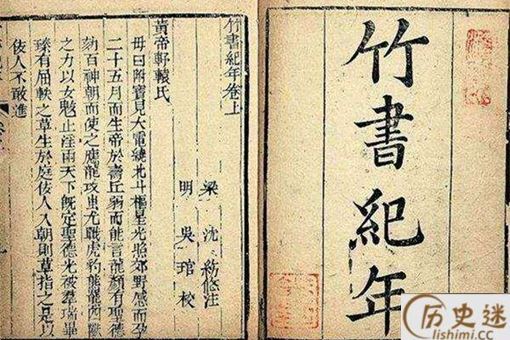 竹書紀年
竹書紀年卷上
梁 沈約修注
明 吳琯校
黃帝軒轅氏
母曰附寶見大電繞北斗樞星光照郊野感而孕
二十五月而生帝於壽丘弱而能言龍顏有聖德
劾百神朝而使之應龍攻蚩尤戰虎豹熊羆四獸
之力以女魃止淫雨天下旣定聖德光被羣瑞畢
臻有屈軼之草生於庭佞人入朝則草指之是以
佞人不敢進
历史迷
lishimi.cc